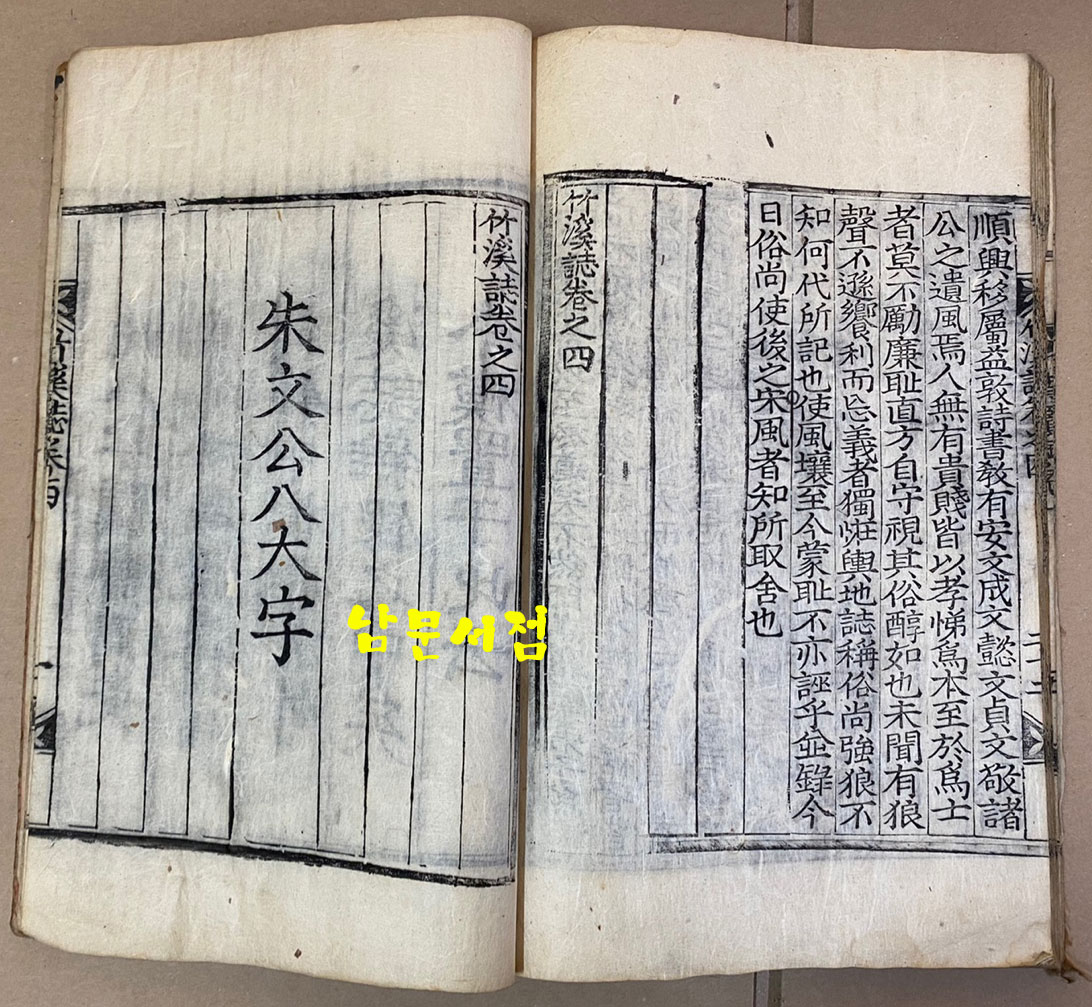 順興移屬益敦詩書敎有安文成文懿文貞文敬諸
公之遺風焉人無有貴賤皆以孝悌爲本至於爲士
者莫不勵廉耻直方自守視其俗醇如也未聞有狼
聲不遜饗利而忘義者獨怪輿地誌稱俗尚強狼不
知何代所記也使風壤至今蒙耻不亦誣乎並錄今
日俗尚使後之宋風者知所取舍也
竹溪誌卷之四
竹溪誌卷之四
朱文公八大字
竹溪誌卷四
남문서점